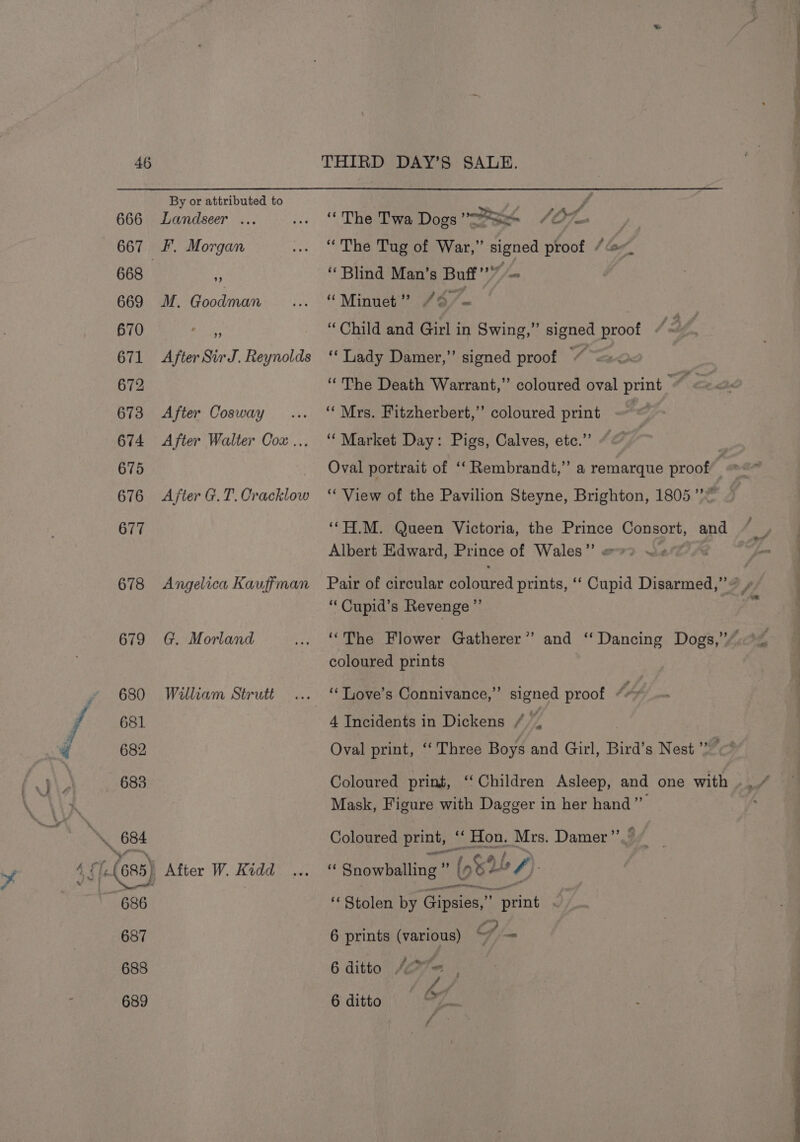 46 THIRD DAY'S SALE.
By or attributed to
666 Landseer ... ... “The Twa Dogs” 10/-
667 F. Morgan ... “The Tug of War,” signed proof
668 ,, “Blind Man's Buff”
669 M. Goodman ... “Minuet”
670 ,, “Child and Girl in Swing,” signed proof
671 After Sir J. Reynolds “Lady Damer,” signed proof
672 “The Death Warrant,” coloured oval print
673 After Cosway ... “Mrs. Fitzherbert,” coloured print
674 After Walter Cox ... “Market Day: Pigs, Calves, etc.”
675 Oval portrait of “Rembrandt,” a remarque proof
676 After G. T. Cracklow “View of the Pavilion Steyne, Brighton, 1805”
677 “H.M. Queen Victoria, the Prince Consort, and
Albert Edward, Prince of Wales”
678 Angelica Kauffman Pair of circular coloured prints, “Cupid Disarmed,”
“Cupid's Revenge”
679 G. Morland ... “The Flower Gatherer” and “Dancing Dogs,”
coloured prints
680 William Strutt ... “Love's Connivance,” signed proof
681 4 Incidents in Dickens
682 Oval print, “Three Boys and Girl, Bird's Nest”
683 Coloured print, “Children Asleep, and one with
Mask, Figure with Dagger in her hand”
684 Coloured print, “Hon. Mrs. Damer”
685 After W. Kidd ... “Snowballing”
686 “Stolen by Gipsies,” print
687 6 prints (various)
688 6 ditto
689 6 ditto